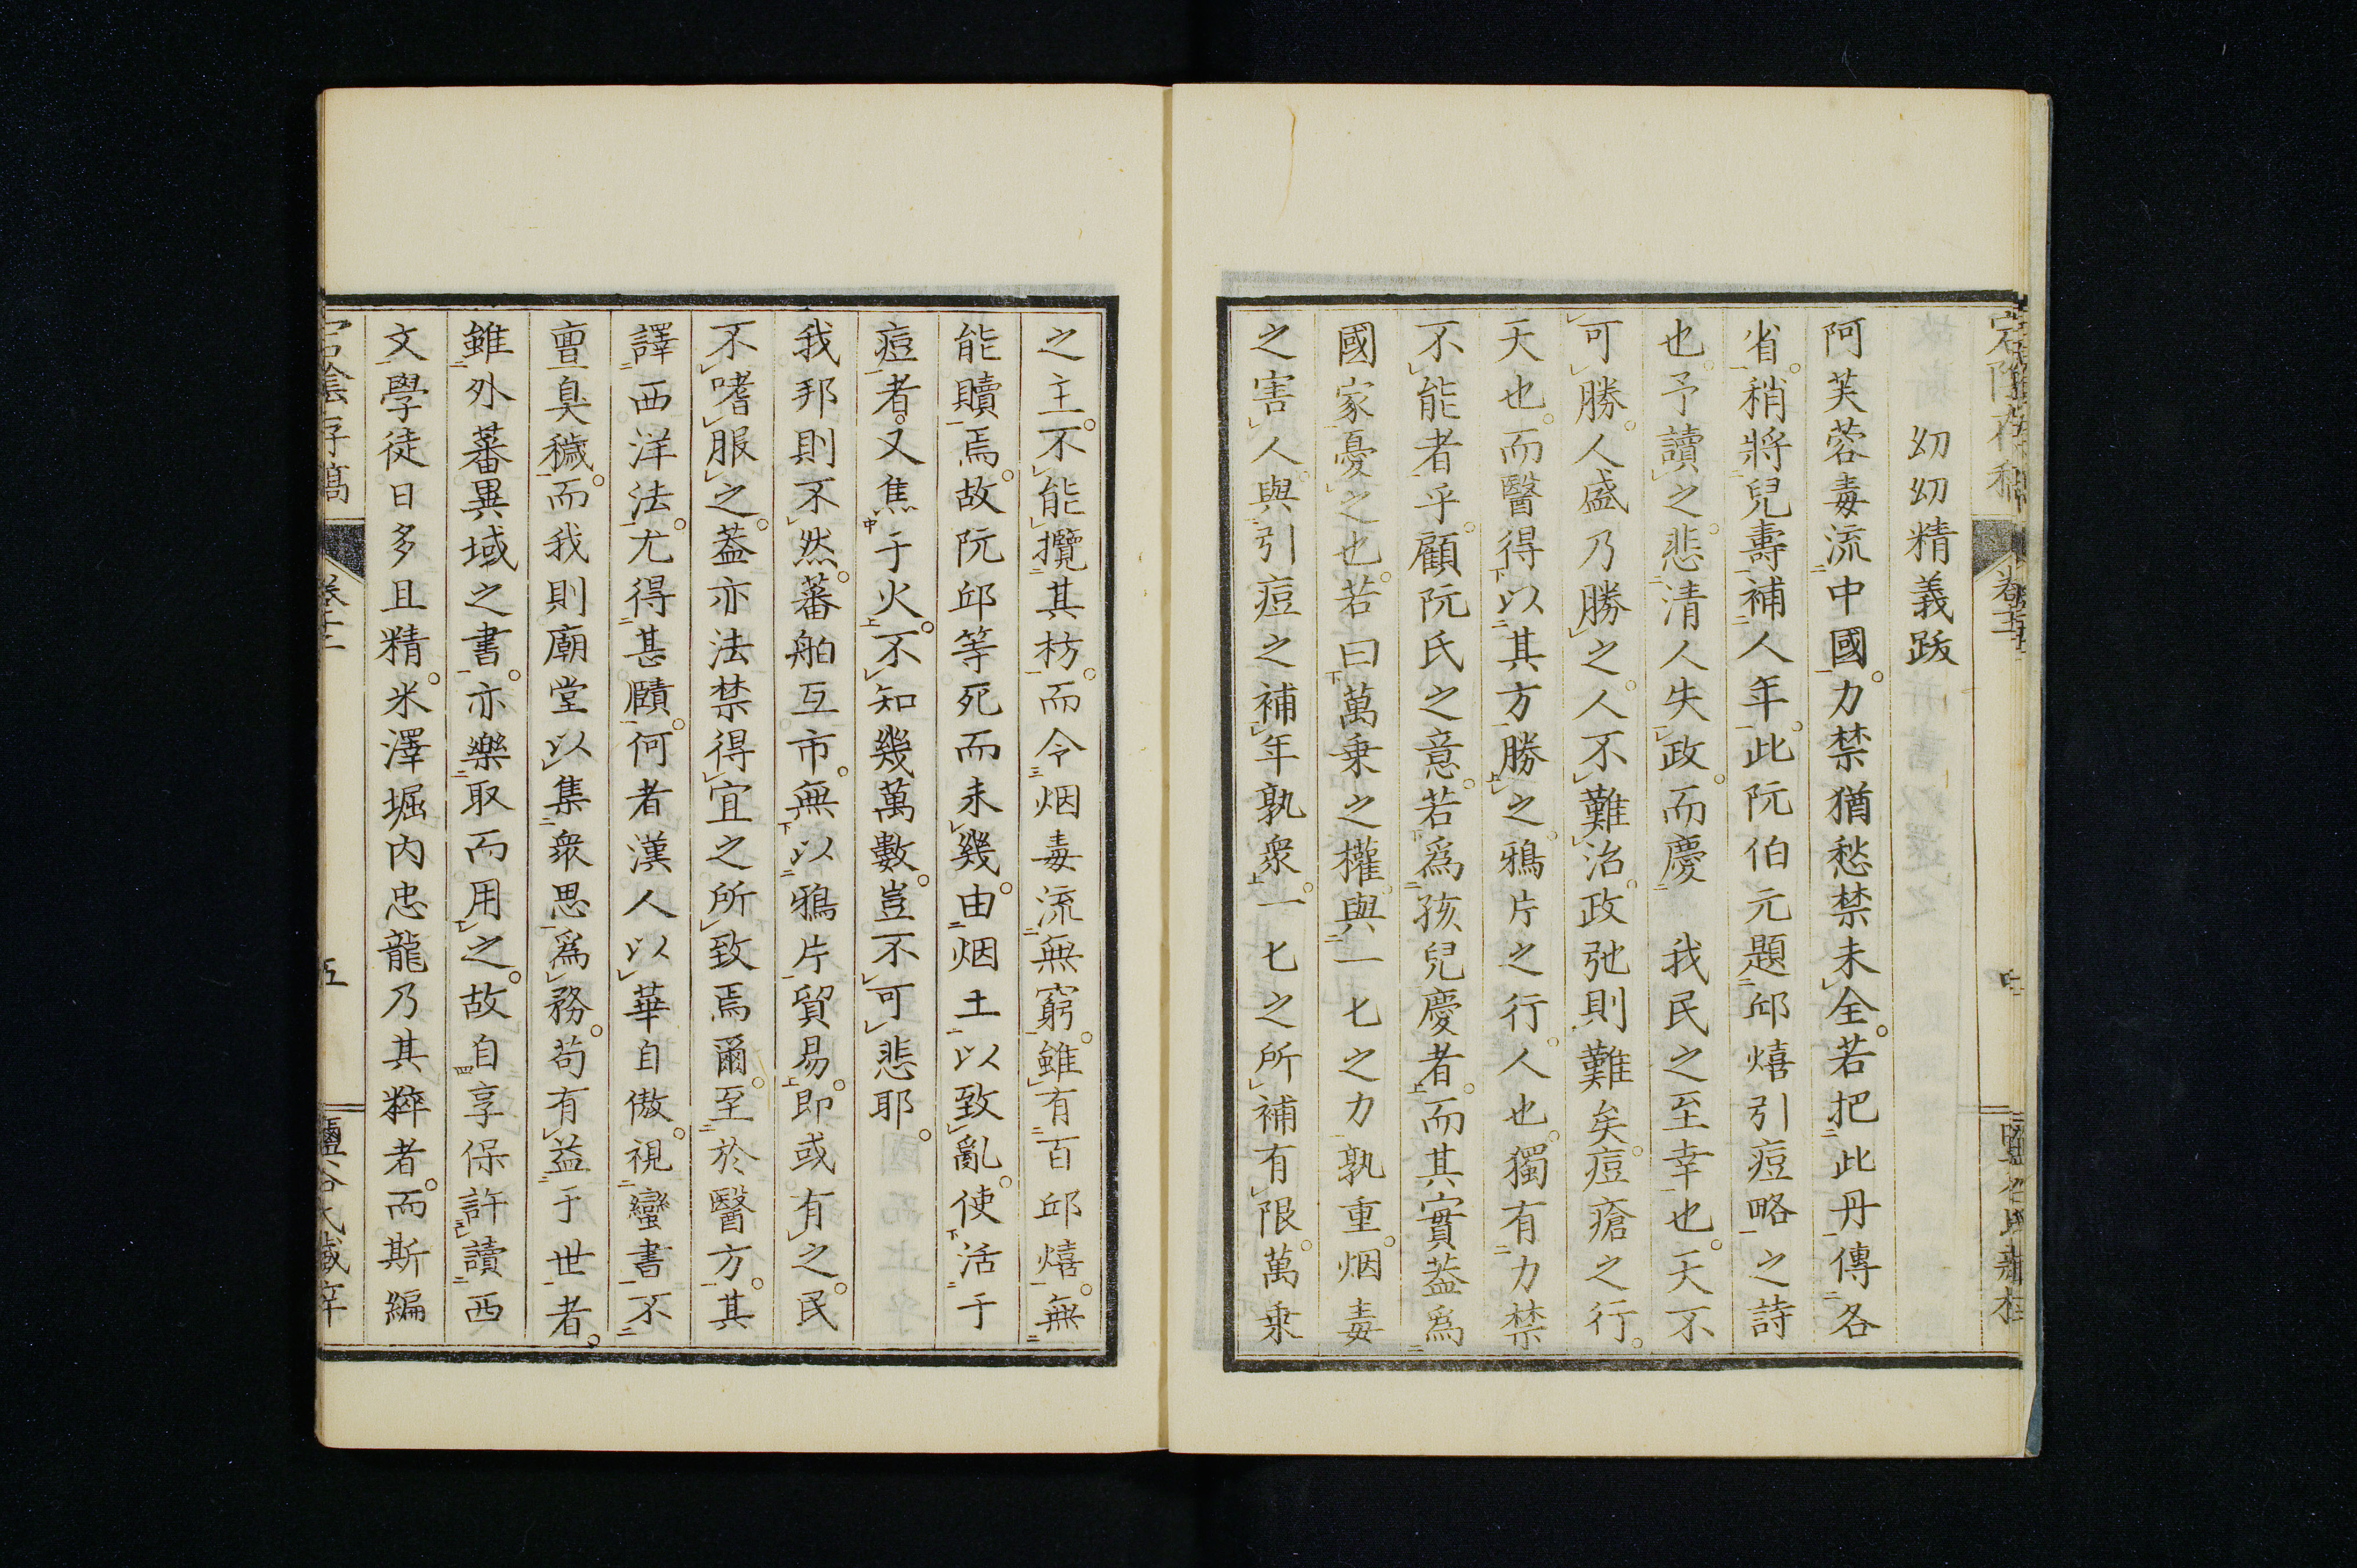 幼幼精義跋
阿芙蓉毒流中國。力禁猶愁禁未全。若把此丹傳各
省。稍將兒壽補人年。此阮伯元題邱熺引痘略之詩
也。予讀之。悲清人失政。而慶 我民之至幸也。天不
可勝。人盛乃勝之。人不難治。政弛則難矣。痘瘡之行。
天也。而醫得以其方勝之。鴉片之行。人也。獨有力禁
不能者乎。顧阮氏之意。若爲孩兒慶者。而其實蓋爲
國家憂之也。若曰萬乘之權與一七之力孰重。烟毒
之害人與引痘之補年孰衆。一七之所補有限。萬乘
之主。不能攬其枋。而令烟毒流無窮。雖有百邱熺。無
能贖焉。故阮邱等死而未幾。由烟土以致亂。使活于
痘者。又焦于火。不知幾萬數。豈不可悲耶。
我邦則不然。蕃舶互市。無以鴉片貿易。即或有之。民
不嗜服之。蓋亦法禁得宜之所致焉爾。至於醫方。其
譯西洋法。尤得甚賾。何者漢人以華自傲。視蠻書不
亶臭穢。而我則廟堂以集衆思爲務。苟有益于世者。
雖外蕃異域之書。亦樂取而用之。故自享保許讀西
文。學徒日多且精。米澤堀内忠龍乃其粹者。而斯編
宕陰存稿
五